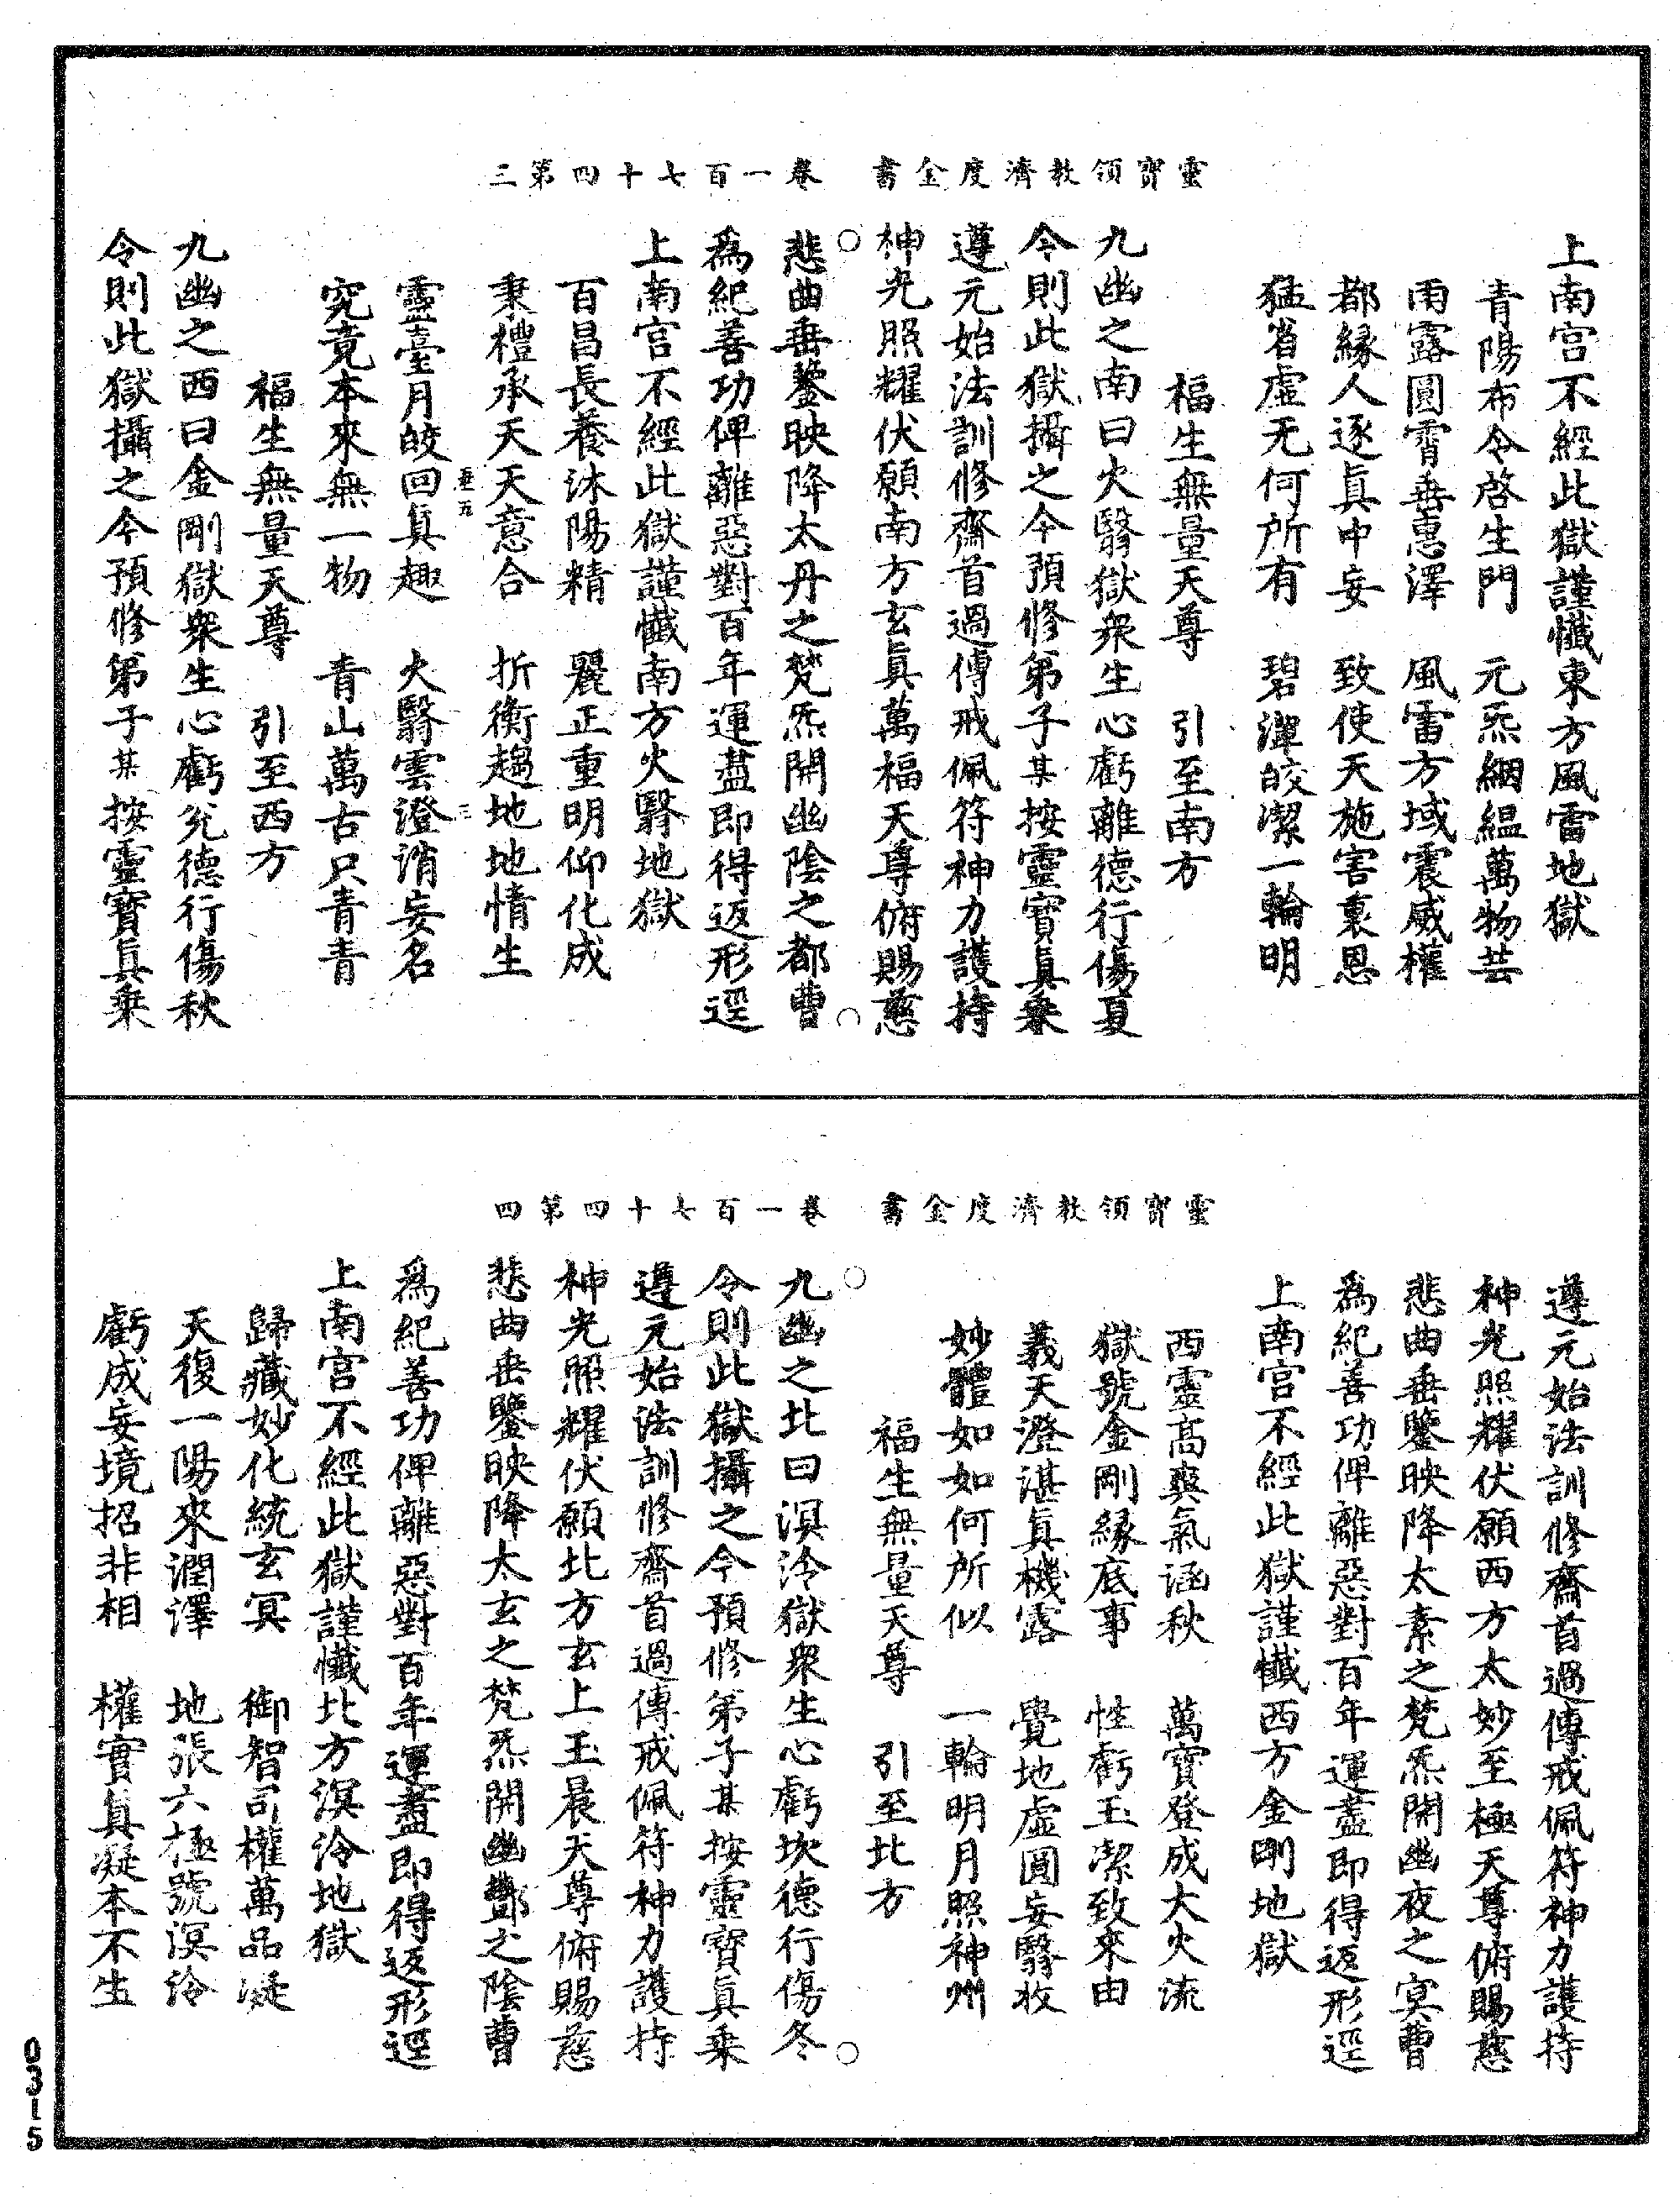 靈寶領教濟度金書　卷一百七十四第三
上南宫不經此獄謹懺東方風雷地獄
青陽布令啓生門　元炁絪緼萬物芸
雨露圓霄垂惠澤　風雷方域震威權
都緣人逐真中妄　致使天施害裏恩
猛省虚无何所有　碧潭皎潔一輪明
福生無量天尊　引至南方
九幽之南曰火翳獄衆生心虧離德行傷夏
今則此獄攝之今預修第子某按靈寶真乘
遵元始法訓修齋首過傳戒佩符神力護持
神光照耀伏願南方玄真萬福天尊俯賜慈
悲曲垂鑒映降太丹之梵炁開幽陰之都曹
為紀善功俾離惡對百年運盡即得返形逕
上南宫不經此獄謹懺南方火翳地獄
百昌長養沐陽精　麗正重明仰化成
秉禮承天天意合　折衡趨地地情生
靈臺月皎回真趣　火翳雲澄誚妄名
究竟本來無一物　青山萬古只青青
福生無量天尊　引至西方
九幽之西曰金剛獄衆生心虧兊德行傷秋
令則此獄攝之今預修第子某按靈寶真乘
靈寶領教濟度金書　卷一百七十四第四
遵元始法訓修齋首過傳戒佩符神力護持
神光照耀伏願西方太妙至極天尊俯賜慈
悲曲垂鑒映降太素之梵炁開幽夜之冥曹
為紀善功俾離惡對百年運盡即得返形逕
上南宫不經此獄謹懺西方金剛地獄
西靈高爽氣涵秋　萬寶登成大火流
獄號金剛緣底事　性虧玉潔致來由
義天澄湛真機露　覺地虚圓妄翳收
妙體如如何所似　一輪明月照神州
福生無量天尊　引至北方
九幽之北曰溟泠獄衆生心虧坎德行傷冬
令則此獄攝之今預修第子某按靈寶真乘
遵元始法訓修齋首過傳戒佩符神力護持
神光照耀伏願北方玄上玉晨天尊俯賜慈
悲曲垂鑒映降太玄之梵炁開幽酆之陰曹
為紀善功俾離惡對百年運盡即得返形逕
上南宫不經此獄謹懺北方溟泠地獄
歸藏妙化統玄冥　御智司權萬品凝
天復一陽來潤澤　地張六極號溟泠
虧成妄境招非相　權實真凝本不生
0315